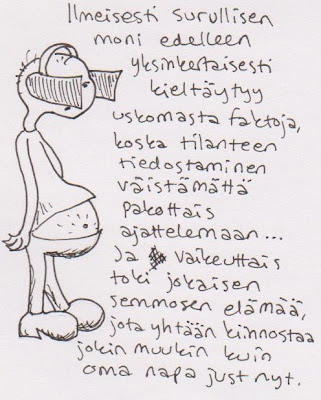 Ilmeisesti surullisen
moni edelleen
yksinkertaisesti
kieltäytyy
uskomasta faktoja,
koska tilanteen
tiedostaminen
väistämättä
pakottais
ajattelemaan...
Ja vaikeuttais
toki jokaisen
semmosen elämää,
jota yhtään kiinnostaa
jokin muukin kuin
oma napa just nyt.